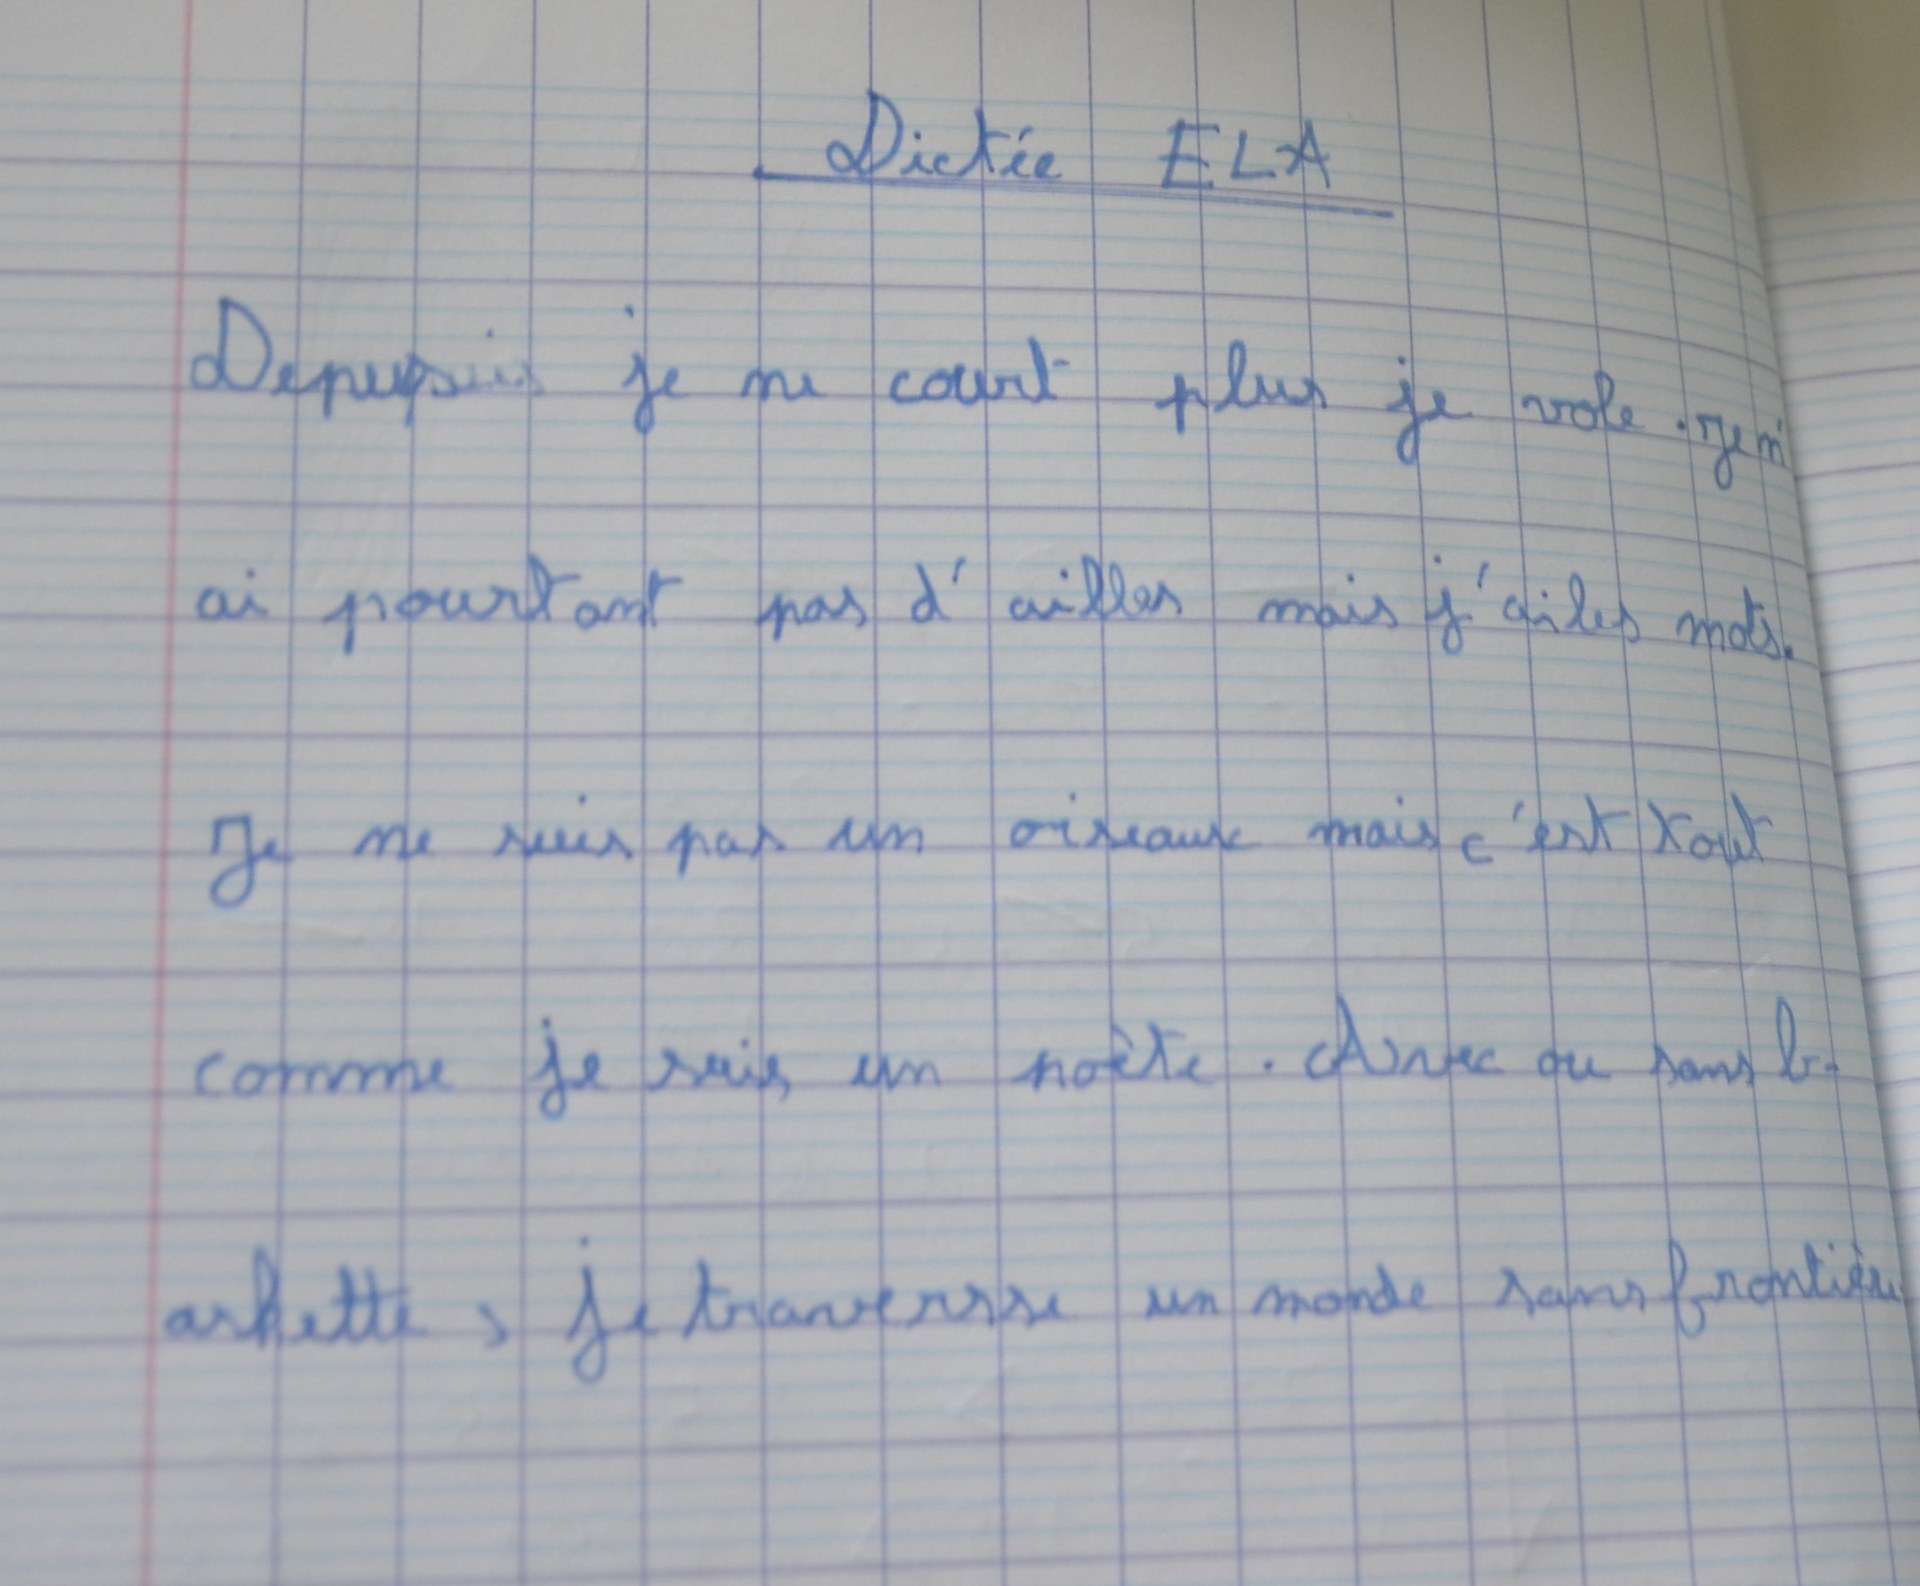 Dictée ELA
Depuis je ne court plus je vole. Je n'
ai pourtant pas d'ailles mais j'ai les mots.
Je ne suis pas un oiseaux mais c'est tout
comme je suis un poète. Avec ou sans b-
arhette, je traversse un monde sans frontière